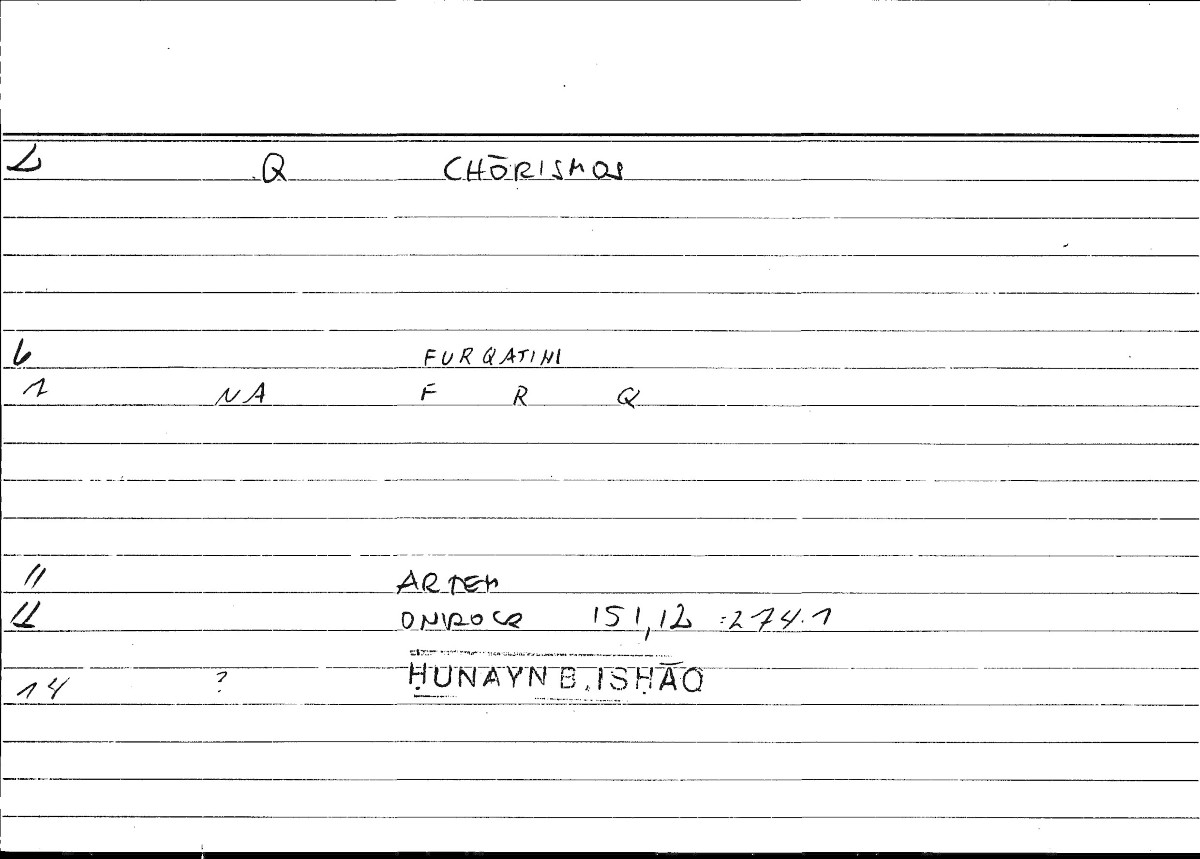 2 Q CHŌRISMOS
6 FURQATIHI
1 NA F R Q
11 ARTEM
12 ONIROCR 151,12 :274.1
14 ? ḤUNAYN B. ISḤĀQ